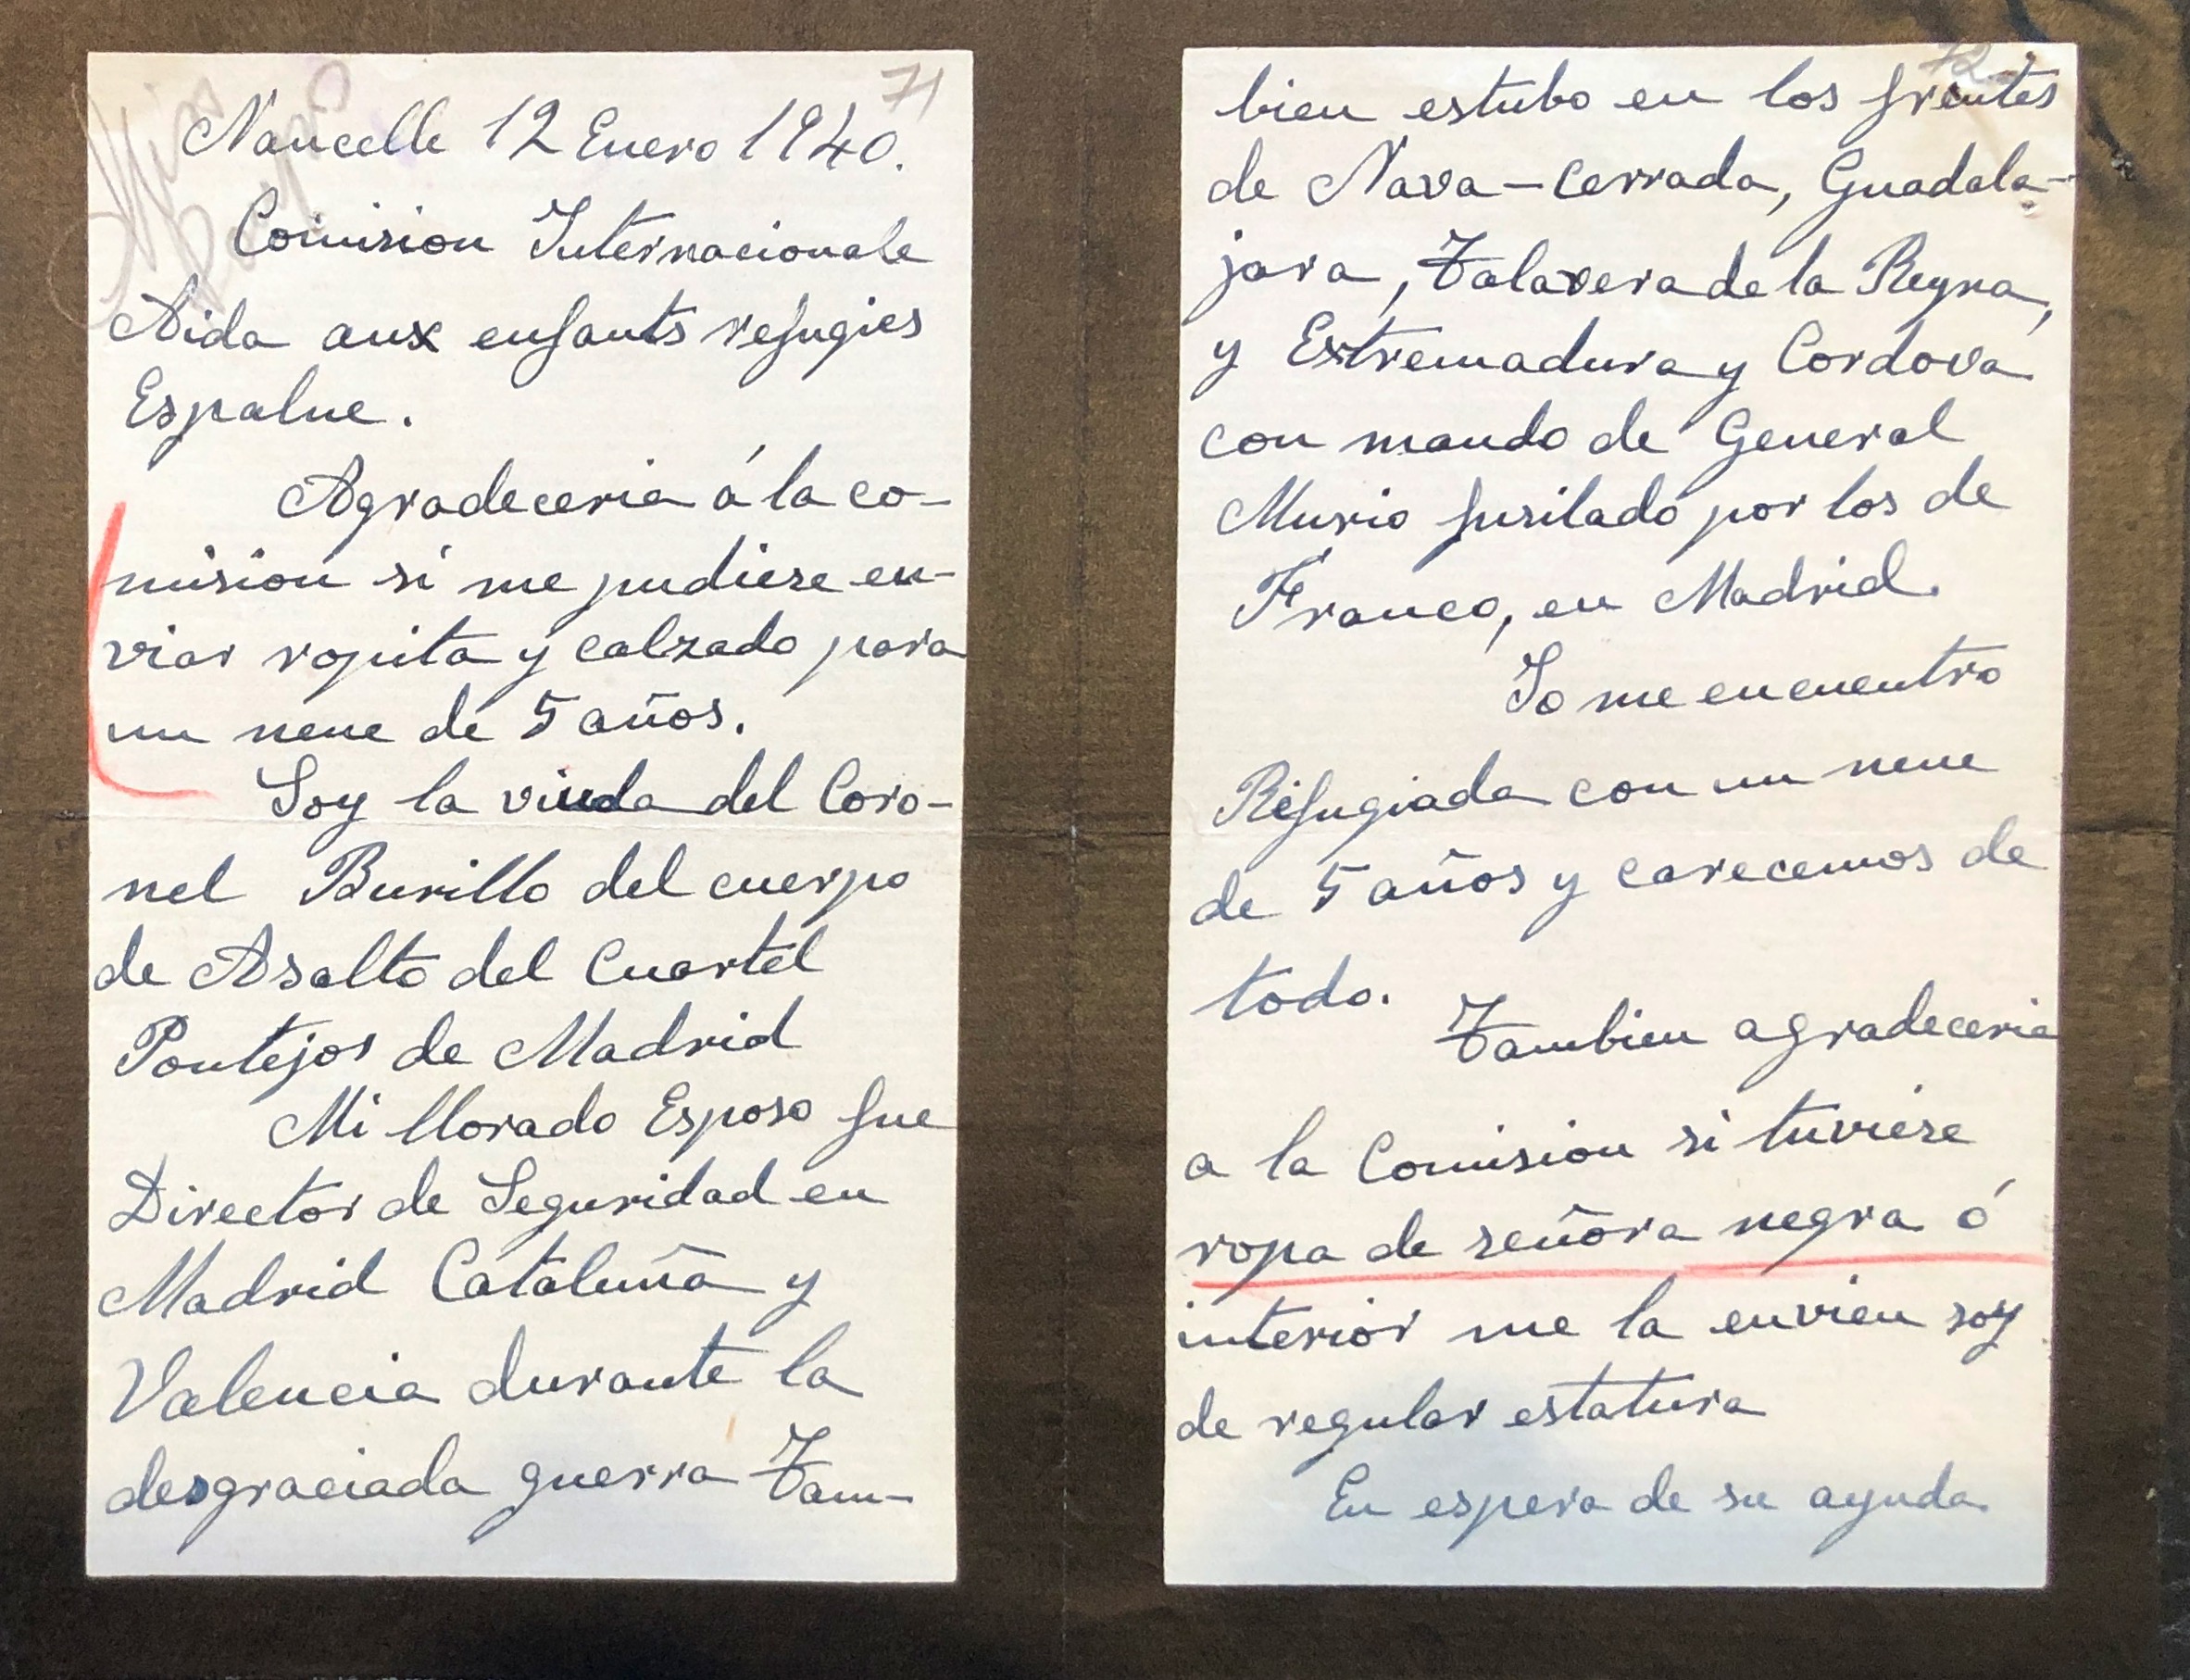 71
Naucelle 12 Enero 1940.
Comision Internacionale
Aida aux enfants refugies
Espalne.
Agradeceria á la co-
mision si me pudiese en-
viar ropita y calzado para
un nene de 5 años.
Soy la viuda del Coro-
nel Burillo del cuerpo
de Asalto del Cuartel
Pontejos de Madrid
Mi llorado Esposo fue
Director de Seguridad en
Madrid Cataluña y
Valencia durante la
desgraciada guerra Tam-
72
bien estubo en los frentes
de Nava-cerrada, Guadala-
jara, Talavera de la Reyna,
y Extremadura y Cordova
con mando de General
Murio fusilado por los de
Franco, en Madrid.
Yo me encuentro
Refugiada con un nene
de 5 años y carecemos de
todo.
Tambien agradeceria
a la Comision si tuviese
ropa de señora negra ó
interior me la envien soy
de regular estatura
En espera de su ayuda